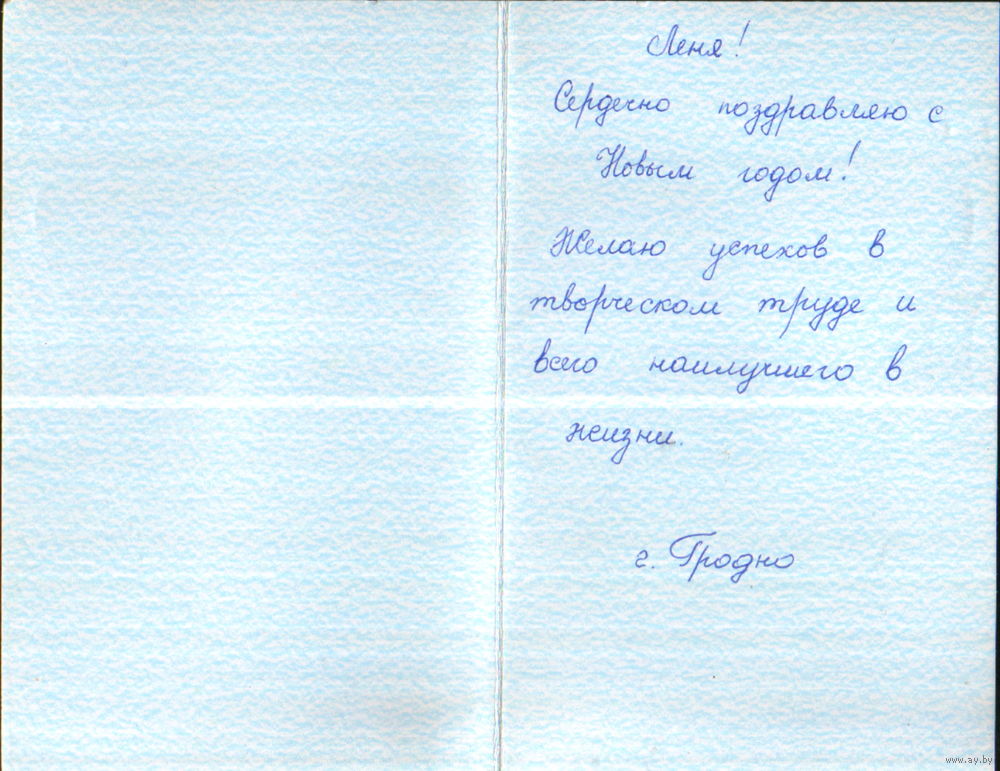 Леня!
Сердечно поздравляю с
Новым годом!
Желаю успехов в
творческом труде и
всего наилучшего в
жизни.
г. Гродно
www.ay.by